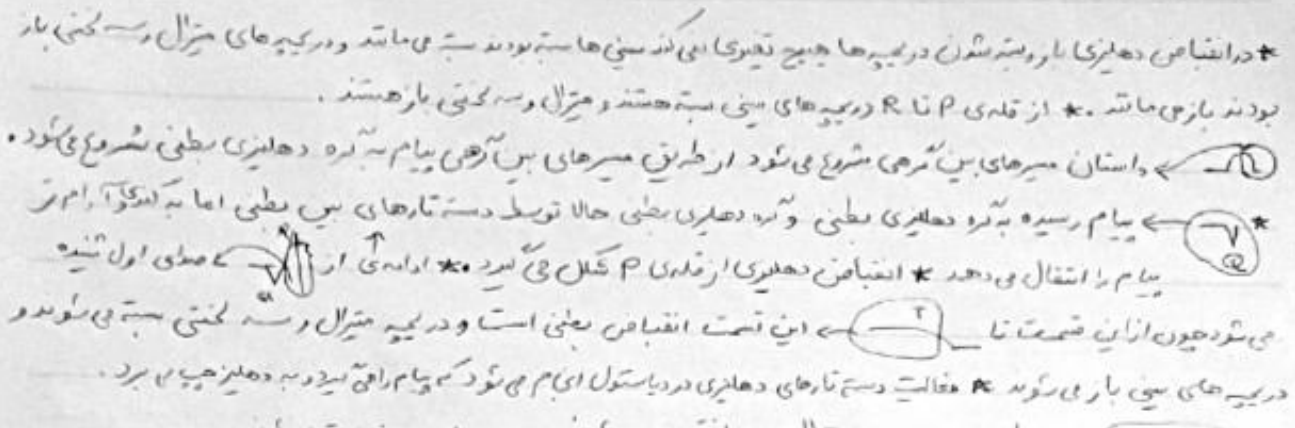 * در انقباض دهلیزی باز و بسته شدن دریچه ها هیچ تغییری نمی کند سینی ها بسته بودند بسته می مانند و دریچه های میترال و سه لختی باز
بودند باز می مانند . * از قله ی P تا R دریچه های سینی بسته هستند و میترال و سه لختی باز هستند .
داستان مسیرهای بین گرهی شروع می شود از طریق مسیرهای بین گرهی پیام به گره دهلیزی بطنی شروع می شود .
* Q پیام رسیده به گره دهلیزی بطنی و گره دهلیزی بطنی حالا توسط دسته تارهای بین بطنی اما به کندی و آرام تر
پیام را انتقال می دهد * انقباض دهلیزی از قله ی P شکل می گیرد . * ادامه ی از صدای اول شنیده
می شود چون از این قسمت تا T این قسمت انقباض بطنی است و دریچه میترال و سه لختی بسته می شوند و
دریچه های سینی باز می شوند * فعالیت دسته تارهای دهلیزی در دیاستول انجام می شود که پیام را می گیرد و به دهلیز چپ می برد .